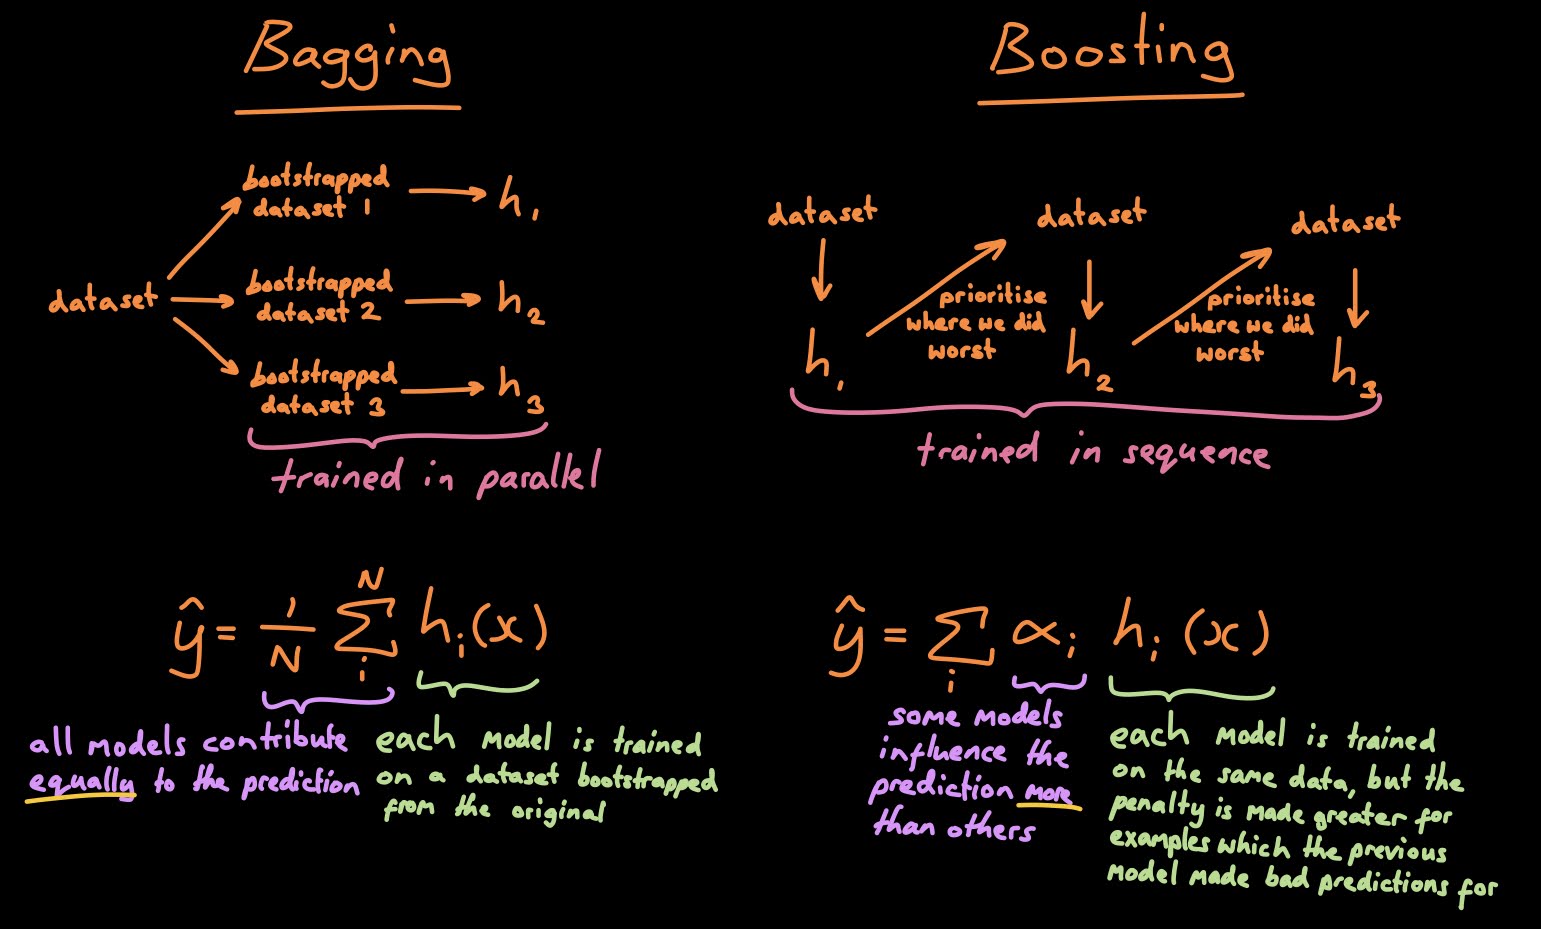 Bagging
bootstrapped
dataset 1
h₁
dataset
bootstrapped
dataset 2
h₂
bootstrapped
dataset 3
h₃
trained in parallel
ŷ = 1/N Σᵢᴺ hᵢ(x)
all models contribute
equally to the prediction
each model is trained
on a dataset bootstrapped
from the original
Boosting
dataset
h₁
prioritise
where we did
worst
dataset
h₂
prioritise
where we did
worst
dataset
h₃
trained in sequence
ŷ = Σᵢ αᵢ hᵢ(x)
some models
influence the
prediction more
than others
each model is trained
on the same data, but the
penalty is made greater for
examples which the previous
model made bad predictions for